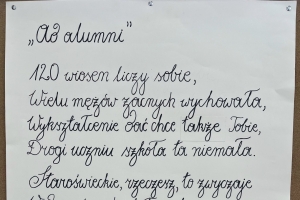 „Ad alumni”
120 wiosen liczy sobie,
Wielu mężów zacnych wychowała,
Wykształcenie dać chce także Tobie,
Drogi uczniu szkoła ta niemała.
Staroświeckie, rzeczesz, to zwyczaje